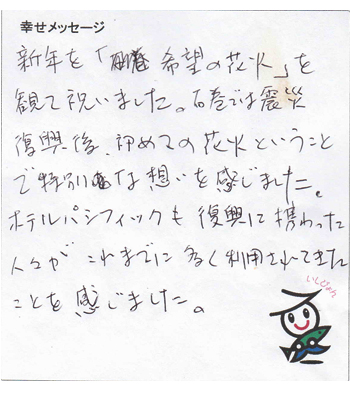 幸せメッセージ
新年を「希望の花火」を
観て祝いました。石巻では震災
復興後、初めての花火ということ
で特別な想いを感じました。
ホテルパシフィックも復興に携わった
人々がこれまでに多く利用されてきた
ことを感じました。
いしぴょん